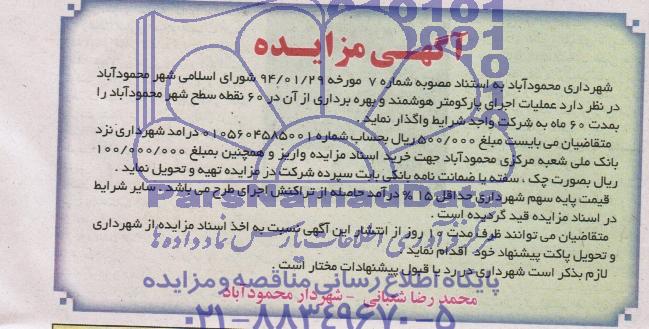 آگهـی مزایـده
شهرداری محمودآباد به استناد مصوبه شماره ۷ مورخه ۹۴/۰۱/۲۹ شورای اسلامی شهر محمودآباد
در نظر دارد عملیات اجرای پارکومتر هوشمند و بهره برداری از آن در ۶۰ نقطه سطح شهر محمودآباد را
بمدت ۶۰ ماه به شرکت واجد شرایط واگذار نماید .
متقاضیان می بایست مبلغ ۵۰۰/۰۰۰ ریال بحساب شماره ۰۱۰۵۶۰۴۵۸۵۰۰۱ درآمد شهرداری نزد
بانک ملی شعبه مرکزی محمودآباد جهت خرید اسناد مزایده واریز و همچنین بمبلغ ۱۰۰/۰۰۰/۰۰۰
ریال بصورت چک ، سفته یا ضمانت نامه بانکی بابت سپرده شرکت در مزایده تهیه و تحویل نماید .
قیمت پایه سهم شهرداری حداقل ۱۵% درآمد حاصله از تراکنش اجرای طرح می باشد . سایر شرایط
در اسناد مزایده قید گردیده است .
متقاضیان می توانند ظرف مدت ۱۰ روز از انتشار این آگهی نسبت به اخذ اسناد مزایده از شهرداری
و تحویل پاکت پیشنهاد خود اقدام نماید .
لازم بذکر است شهرداری در رد یا قبول پیشنهادات مختار است .
محمد رضا شعبانی - شهردار محمود آباد
ParsNamadData
مرکز فرآوری اطلاعات پارس نماد داده ها
پایگاه اطلاع رسانی مناقصه و مزایده
۰۲۱-۸۸۳۴۹۶۷۰-۵